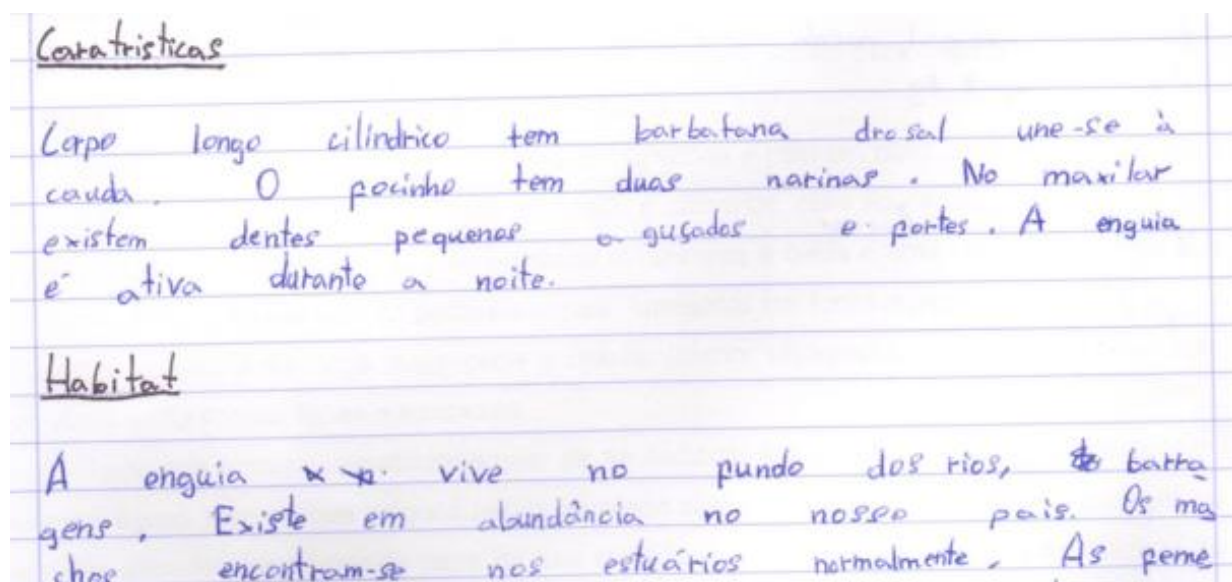 Caratristicas
Corpo longo cilíndrico tem barbatana drosal une-se à
cauda. O focinho tem duas narinas. No maxilar
existem dentes pequenos a guçados e fortes. A enguia
é ativa durante a noite.
Habitat
A enguia vive no fundo dos rios, barra
gens, Existe em abundância no nosso pais. Os ma
chos encontram-se nos estuários normalmente. As feme